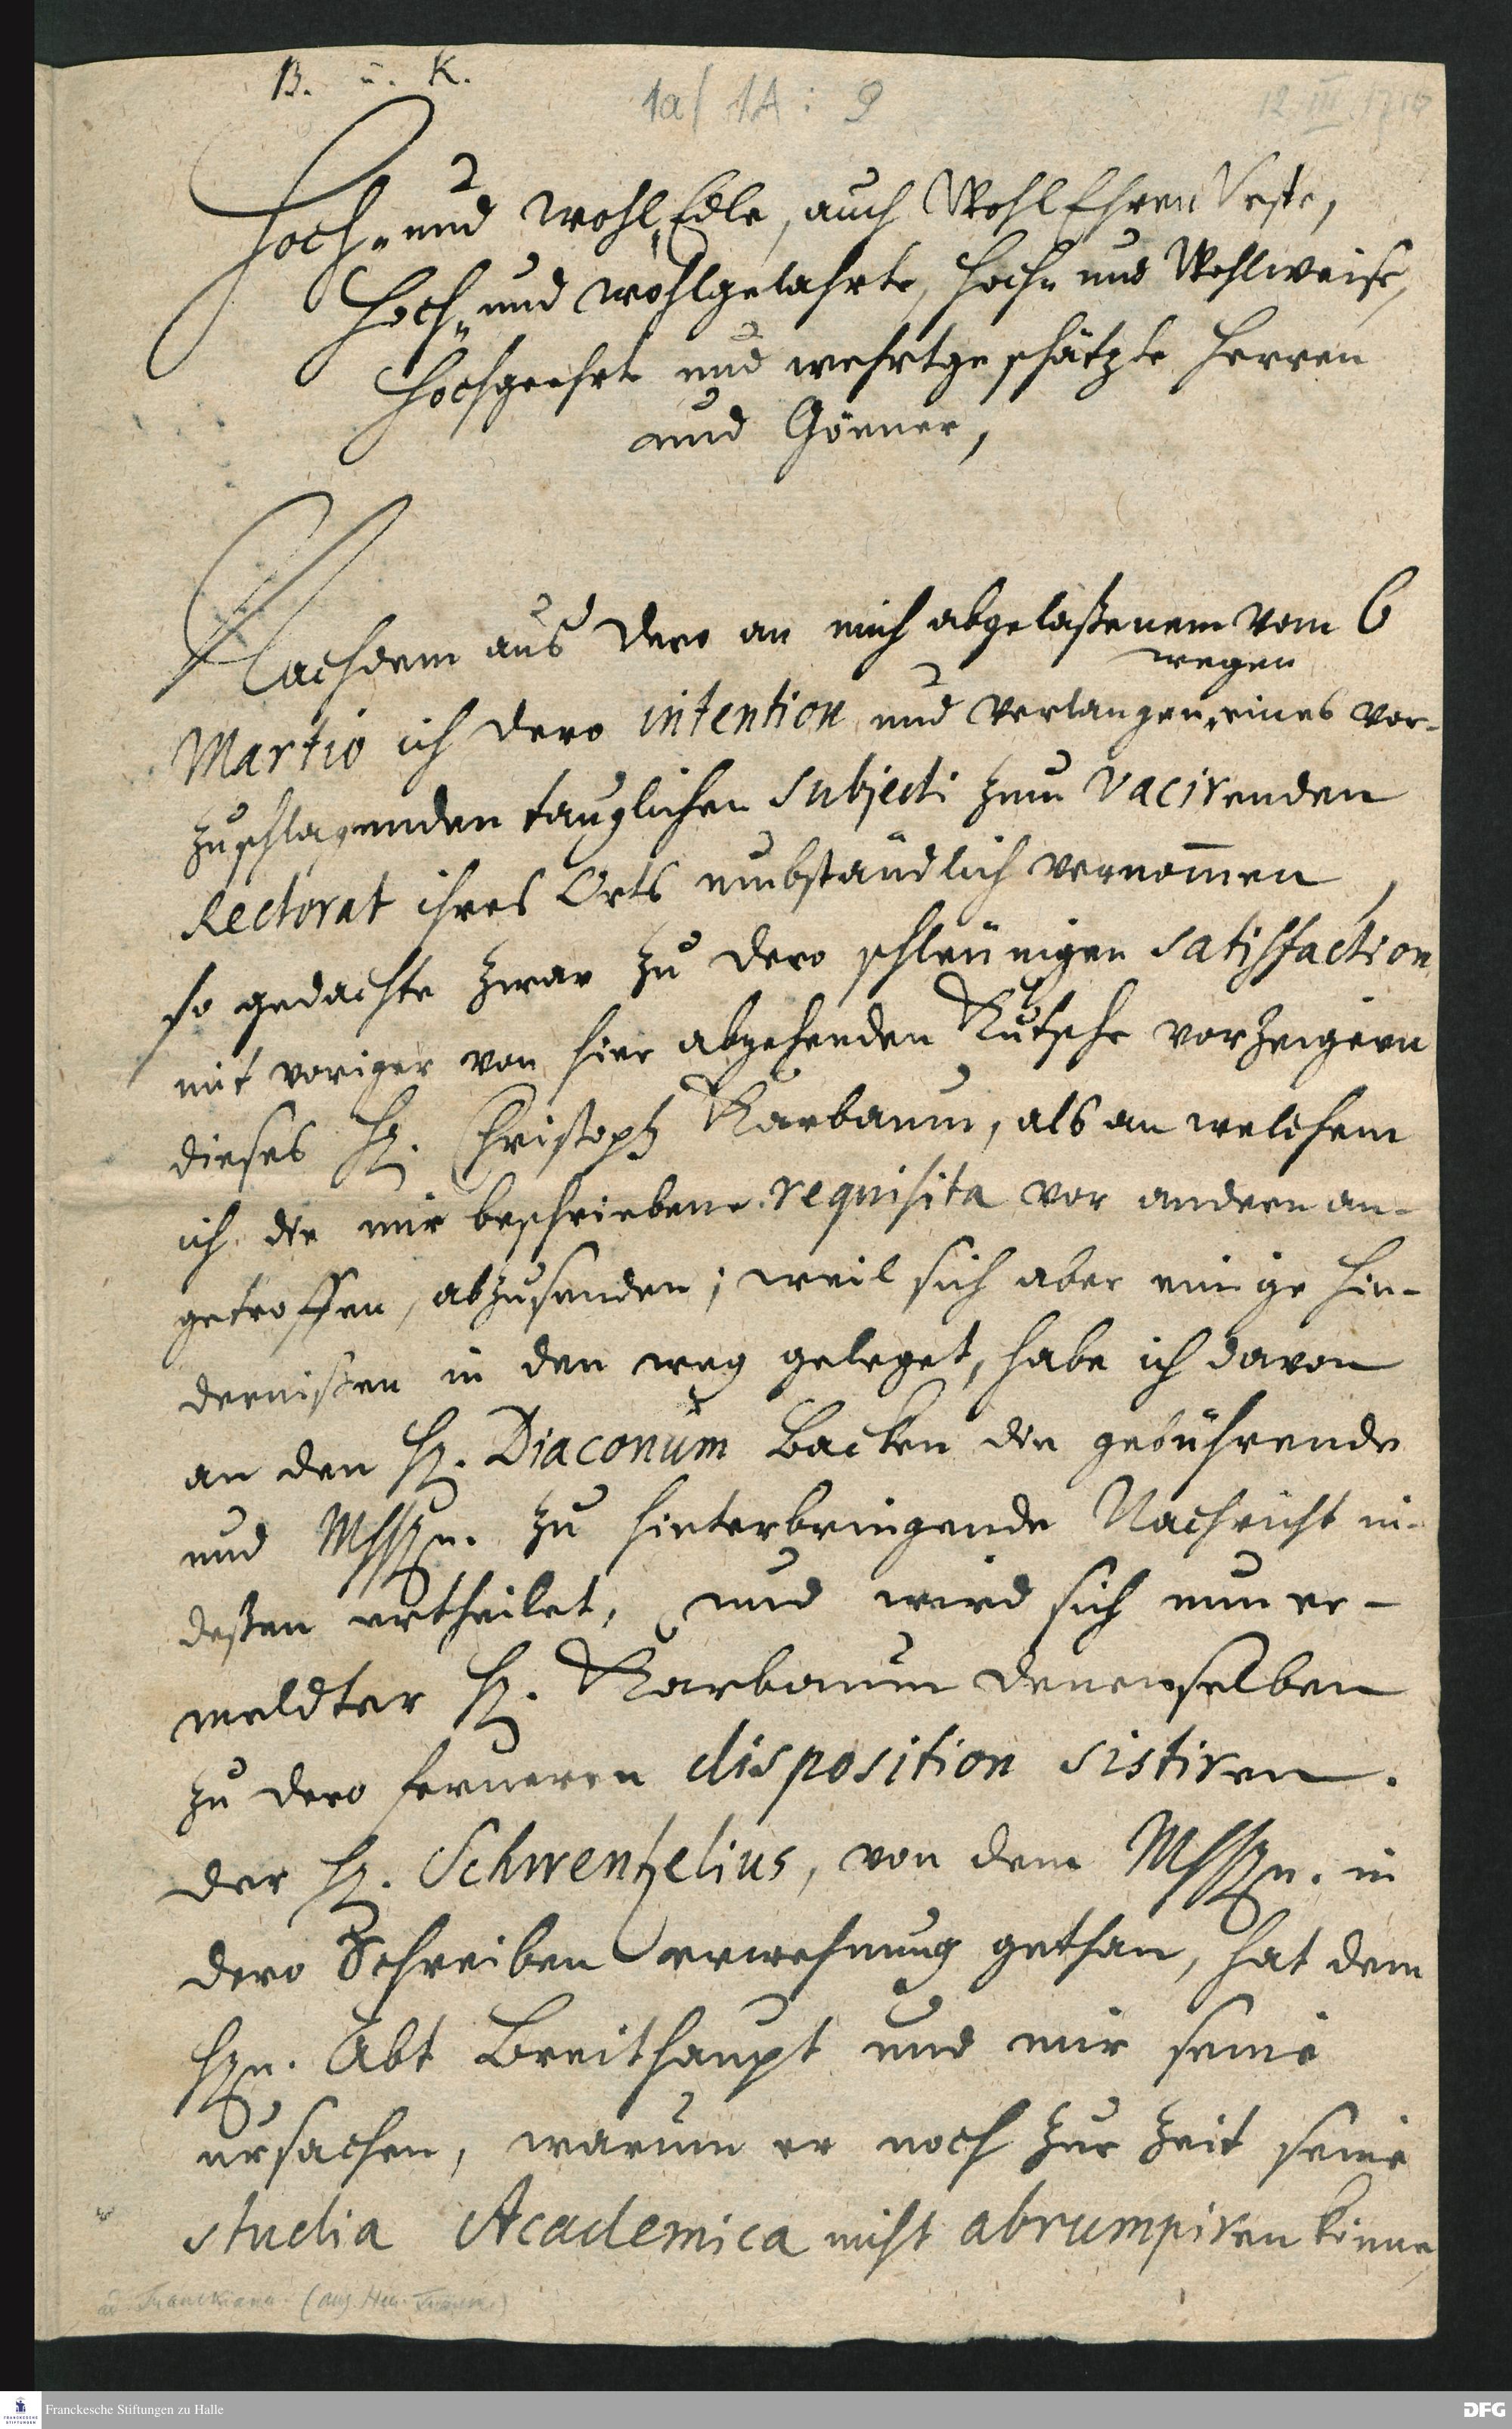 B. u. K.
1a/1A: 9
12 III. 1710
Hoch- und Wohl-Edle, auch WohlEhrenVeste,
Hoch- und wohlgelahrte, Hoch- und Wohlweise,
Hochgeehrte und wehrtgeschätzte Herren
und Gönner,
Nachdem aus Dero an mich abgelaßenem vom 6
wegen
Martio ich dero intention und Verlangen eines vor-
zuschlagenden tauglichen Subjecti zum vacirenden
Rectorat ihres Orts umbständlich vernom̅en,
so gedachte zwar zu dero schleunigen satisfaction
mit voriger von hier abgehenden Kutsche vorzeigern
dieses H. Christoph Karbaum, als an welchem
ich die mir beschriebene requisita vor andern an-
getroffen, abzusenden; weil sich aber einige Hin-
dernißen in den weg geleget, habe ich davon
an den H. Diaconum Backen die gebührende
und MhhHn. zu hinterbringende Nachricht in-
deßen ertheilet, und wird sich nun er-
meldter H. Karbaum denenselben
zu dero ferneren disposition sistiren.
Der H. Schwentzelius, von dem MhhHn. in
dero Schreiben erwehnung gethan, hat dem
Hn. Abt Breithaupt und mir seine
ursachen, warum er noch zur Zeit seine
studia Academica nicht abrumpiren könne,
ad. Franckiana. (Aug. Herm. Francke)
Franckesche Stiftungen zu Halle
DFG